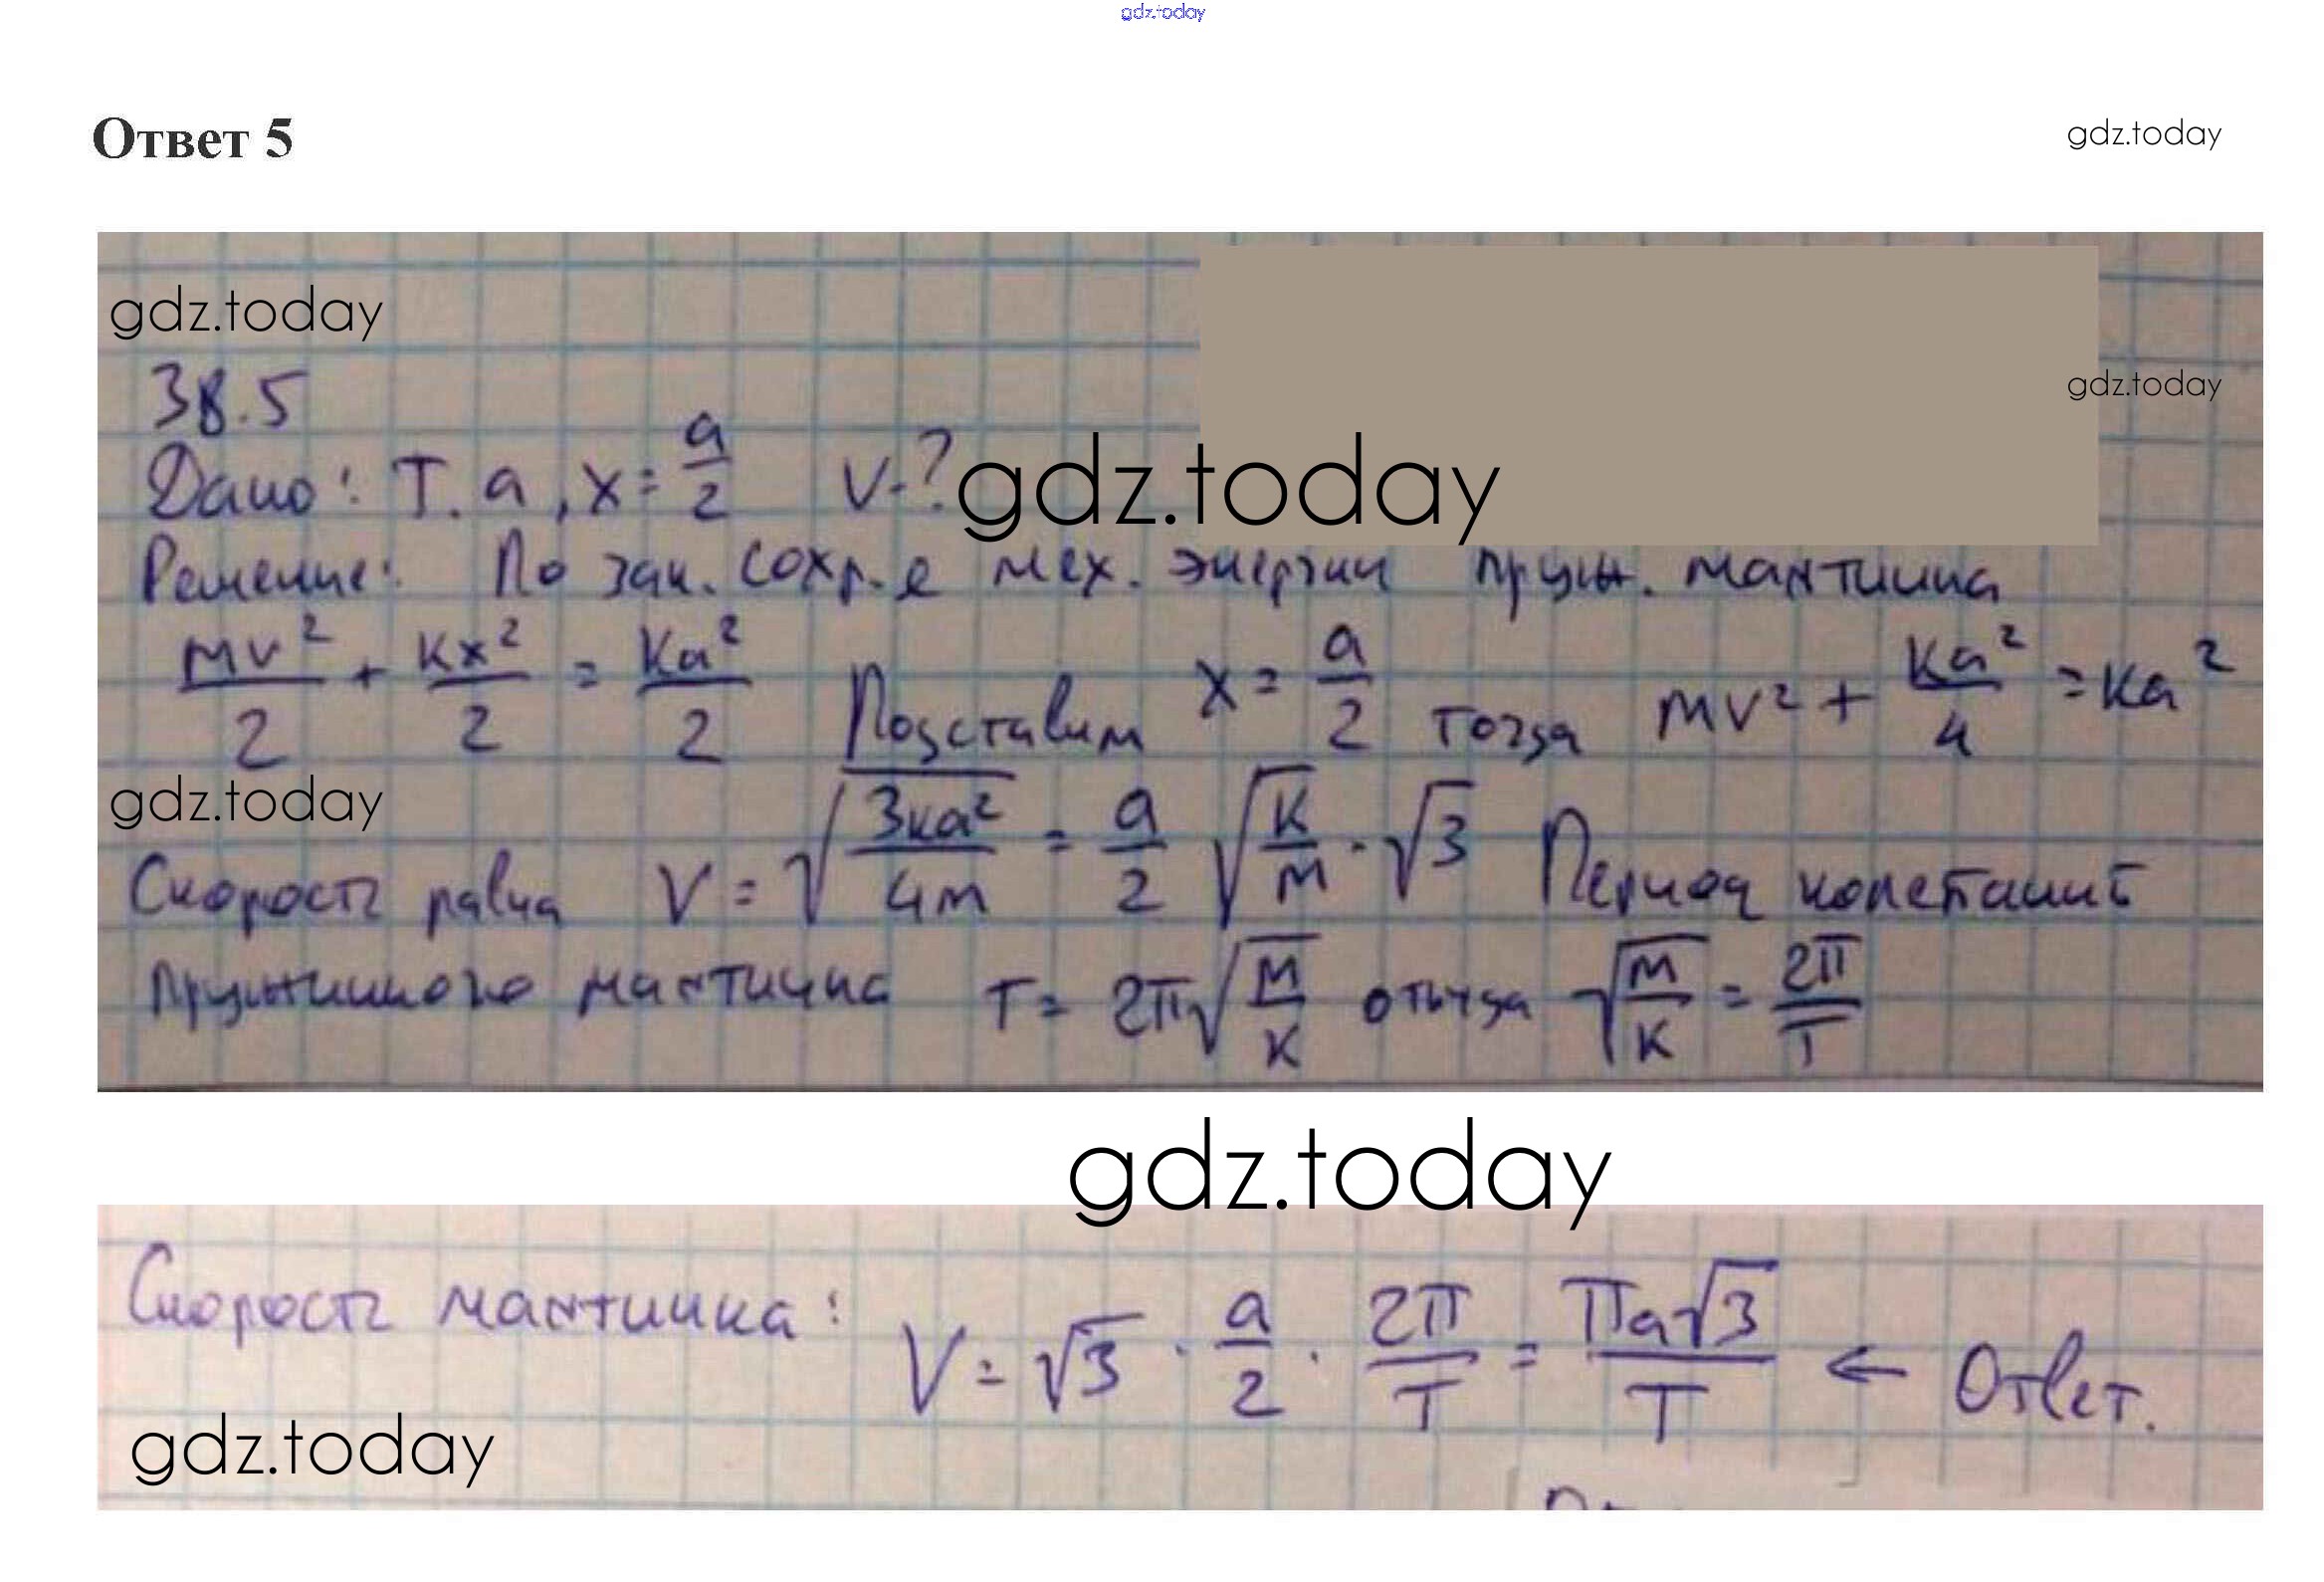 gdz.today
Ответ 5
gdz.today
gdz.today
38.5
gdz.today
Дано: T. a, x = a/2 v-?
gdz.today
Решение: По зак. сохр-е мех. энергии пруж. маятника
mv²/2 + kx²/2 = ka²/2 Подставим x = a/2 тогда mv² + ka²/4 = ka²
gdz.today
Скорость равна V = √(3ka²/4m) = a/2 √(k/m) · √3 Период колебаний
пружинного маятника T = 2π√(m/k) откуда √(m/k) = 2π/T
gdz.today
Скорость маятника: V = √3 · a/2 · 2π/T = πa√3/T ← Ответ.
gdz.today